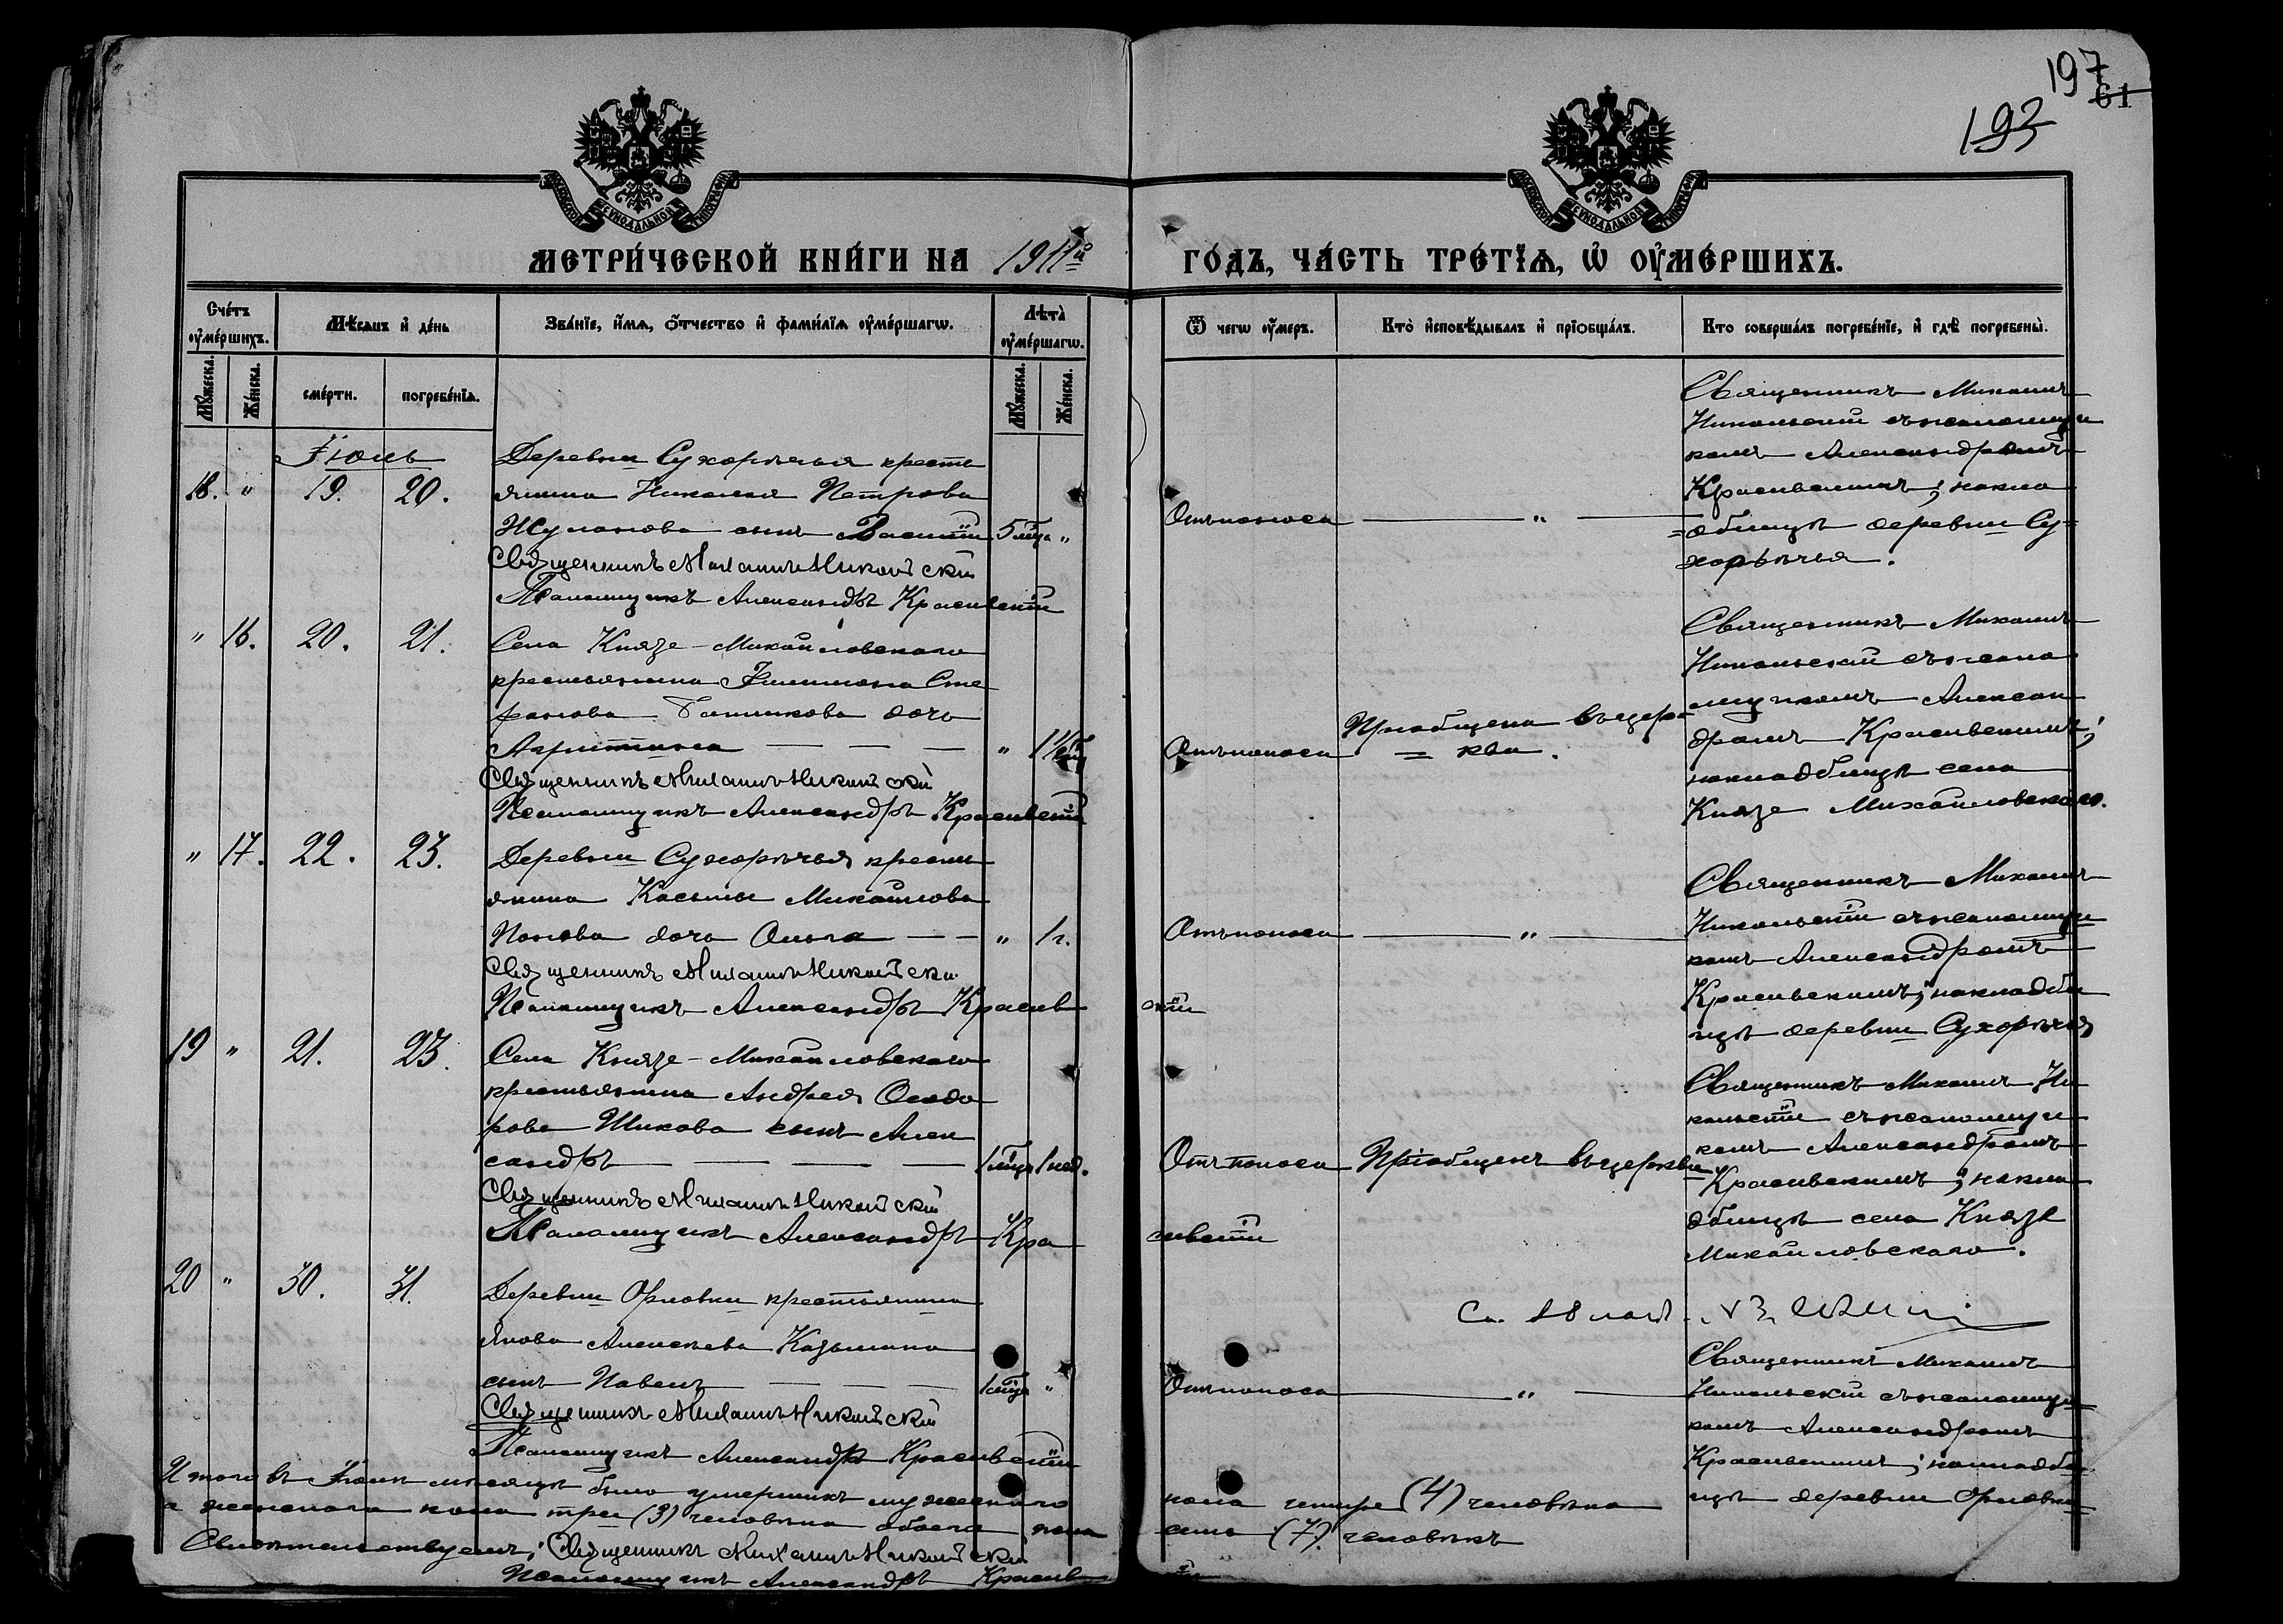 197
61
193
МОСКОВСКОЙ СѴНОДАЛЬНОЙ ТИПОГРАФІИ
МОСКОВСКОЙ СѴНОДАЛЬНОЙ ТИПОГРАФІИ
МЕТРИ́ЧЕСКОЙ КНИ́ГИ НА 1911й ГО́ДЪ, ЧА́СТЬ ТРЕ́ТЇѦ, Ѡ҆ ОУ҆МЕ́РШИХЪ.
Сче́тъ оу҆ме́ршихъ.
Мѣ́сѧцъ и҆ де́нь
Зва́нїе, и҆́мѧ, ѻ҆́тчество и҆ фами́лїѧ оу҆ме́ршагѡ.
Лѣта̀ оу҆ме́ршагѡ.
Ѿ чегѡ̀ оу҆́меръ.
Кто̀ и҆сповѣ́дывалъ и҆ прїѡбща́лъ.
Кто̀ соверша́лъ погребе́нїе, и҆ гдѣ̀ погребены̀.
Мꙋ́жеска.
Же́нска.
сме́рти.
погребе́нїѧ.
Мꙋ́жеска.
Же́нска.
Іюль
18. " 19. 20.
Деревни Сухорѣчья кресть
янина Николая Петрова
Жуланова сынъ Василій 5 мца "
Священникъ Михаилъ Никольскій
Псаломщикъ Александръ Красивскій
Отъ поноса — " —
Священникъ Михаилъ
Никольскій съ псаломщи
комъ Александромъ
Красивскимъ; на кла
=дбищѣ деревни Су=
хорѣчья.
" 16. 20. 21.
Села Князе-Михайловскаго
крестьянина Филимона Сте
фанова дочь
Агриппина — — — " 1 1/2
Священникъ Михаилъ Никольскій
Псаломщикъ Александръ Красивскій
Отъ поноса
Пріобщена въ цер=
= кви.
Священникъ Михаилъ
Никольскій съ псало
мщикомъ Алексан
дромъ Красивскимъ;
на кладбищѣ села
Князе Михайловскаго.
" 17. 22. 23.
Деревни Сухорѣчья кресть
янина Касьмы Михайлова
Попова дочь Ольга — — " 1 г.
Священникъ Михаилъ Никольскій
Псаломщикъ Александръ Красивскій
Отъ поноса — " —
Священникъ Михаилъ
Никольскій съ псаломщи
комъ Александромъ
Красивскимъ; на кладби
щѣ деревни Сухорѣчья
19 " 21. 23.
Села Князе-Михайловскаго
крестьянина Андрея Ѳеодо
рова Шикова сынъ Алек
сандръ — — — — 1 мца 1 нед.
Священникъ Михаилъ Никольскій
Псаломщикъ Александръ Красивскій
Отъ поноса Пріобщенъ въ церкви
Священникъ Михаилъ Ни
кольскій съ псаломщи
комъ Александромъ
Красивскимъ; на кла
дбищѣ села Князе
Михайловскаго.
20 " 30. 31.
Деревни Орловки крестьянина
Якова Алексѣева Казьмина
сынъ Павелъ — — — 1 мца "
Священникъ Михаилъ Никольскій
Псаломщикъ Александръ Красивскій
Отъ поноса — " —
Священникъ Михаилъ
Никольскій съ псаломщи
комъ Александромъ
Красивскимъ; на кладби
щѣ деревни Орловки
Итого въ Іюлѣ мѣсяцѣ было умершихъ мужескаго пола четыре (4) человѣка
а женскаго пола три (3) человѣка обоего пола семь (7) человѣкъ
Свидѣтельствуемъ; Священникъ Михаилъ Никольскій
Псаломщикъ Александръ Красивскій